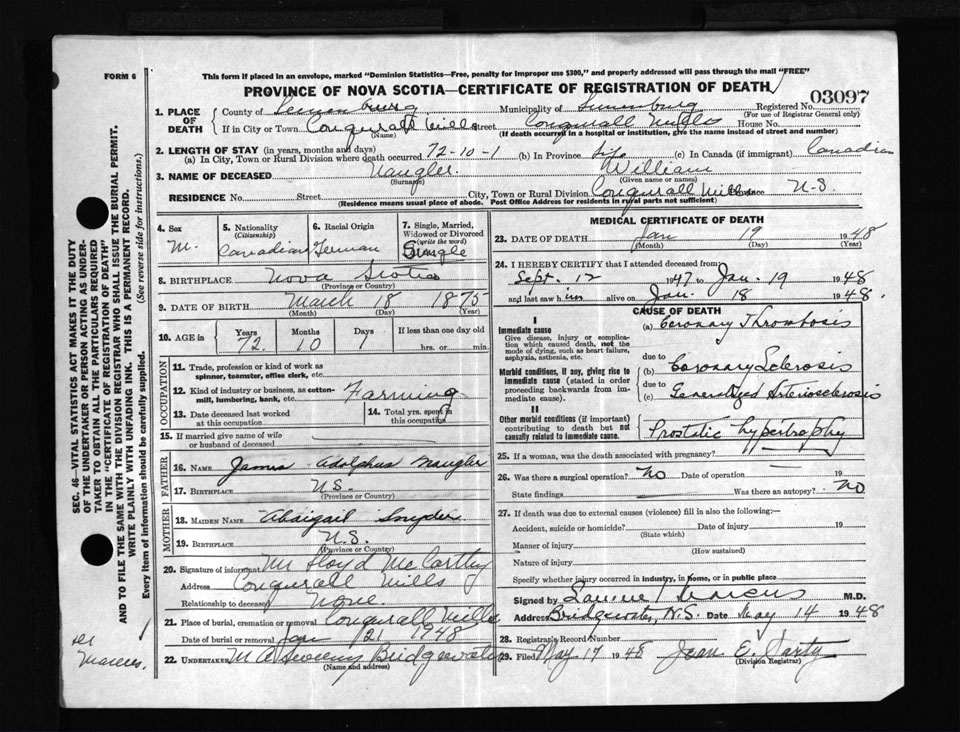 FORM 6
This form if placed in an envelope, marked "Dominion Statistics—Free, penalty for improper use $300," and properly addressed will pass through the mail "FREE"
PROVINCE OF NOVA SCOTIA—CERTIFICATE OF REGISTRATION OF DEATH
03097
1. PLACE OF DEATH
County of Lunenburg Municipality of Lunenburg Registered No.
(For use of Registrar General only)
If in City or Town Conqurall Mills Street Conqurall Mills House No.
(Name) (If death occurred in a hospital or institution, give the name instead of street and number)
2. LENGTH OF STAY (in years, months and days)
(a) In City, Town or Rural Division where death occurred 72-10-1 (b) In Province Life (c) In Canada (if immigrant) Canadian
3. NAME OF DECEASED Naugler William
(Surname) (Given name or names)
RESIDENCE No. Street City, Town or Rural Division Conqurall Mills Province N.S.
(Residence means usual place of abode. Post Office Address for residents in rural parts not sufficient)
4. Sex
M.
5. Nationality
(Citizenship)
Canadian
6. Racial Origin
German
7. Single, Married, Widowed or Divorced
(write the word)
Single
8. BIRTHPLACE Nova Scotia
(Province or Country)
9. DATE OF BIRTH March 18 1875
(Month) (Day) (Year)
10. AGE in
Years Months Days If less than one day old
72 10 1 hrs. or min.
OCCUPATION
11. Trade, profession or kind of work as
spinner, teamster, office clerk, etc.
12. Kind of industry or business, as cotton-
mill, lumbering, bank, etc. Farming
13. Date deceased last worked
at this occupation
14. Total yrs. spent in
this occupation
15. If married give name of wife
or husband of deceased
FATHER
16. NAME James Adolphus Naugler
17. BIRTHPLACE N.S.
(Province or Country)
MOTHER
18. MAIDEN NAME Abaigail Snyder
19. BIRTHPLACE N.S.
(Province or Country)
20. Signature of informant Mr Floyd McCarthy
Address Conqurall Mills
Relationship to deceased None.
21. Place of burial, cremation or removal Conqurall Mills
Date of burial or removal Jan 21 1948
22. UNDERTAKER M A Sweeny Bridgewater
(Name and address)
MEDICAL CERTIFICATE OF DEATH
23. DATE OF DEATH Jan 19 1948
(Month) (Day) (Year)
24. I HEREBY CERTIFY that I attended deceased from
Sept. 12 1947 to Jan. 19 1948
and last saw him alive on Jan. 18 1948.
CAUSE OF DEATH
I
Immediate cause
Give disease, injury or complica-
tion which caused death, not the
mode of dying, such as heart failure,
asphyxia, asthenia, etc.
(a) Coronary Thrombosis
due to
Morbid conditions, if any, giving rise to
immediate cause (stated in order
proceeding backwards from im-
mediate cause).
(b) Coronary Sclerosis
due to
(c) Generalized Arteriosclerosis
II
Other morbid conditions (if important)
contributing to death but not
causally related to immediate cause.
Prostatic hypertrophy
25. If a woman, was the death associated with pregnancy?
26. Was there a surgical operation? No Date of operation 19
State findings Was there an autopsy? No
27. If death was due to external causes (violence) fill in also the following:—
Accident, suicide or homicide? Date of injury 19
(State which)
Manner of injury
(How sustained)
Nature of injury
Specify whether injury occurred in industry, in home, or in public place
Signed by Marcus M.D.
Address Bridgewater, N.S. Date May 14 1948
28. Registrar's Record Number
29. Filed May 17 1948 Jean E. Sarty
(Division Registrar)
SEC. 46—VITAL STATISTICS ACT MAKES IT THE DUTY
OF THE UNDERTAKER OR PERSON ACTING AS UNDER-
TAKER TO OBTAIN ALL THE PARTICULARS REQUIRED
IN THE "CERTIFICATE OF REGISTRATION OF DEATH"
AND TO FILE THE SAME WITH THE DIVISION REGISTRAR WHO SHALL ISSUE THE BURIAL PERMIT.
WRITE PLAINLY WITH UNFADING INK. THIS IS A PERMANENT RECORD.
Every item of information should be carefully supplied. (See reverse side for instructions.)